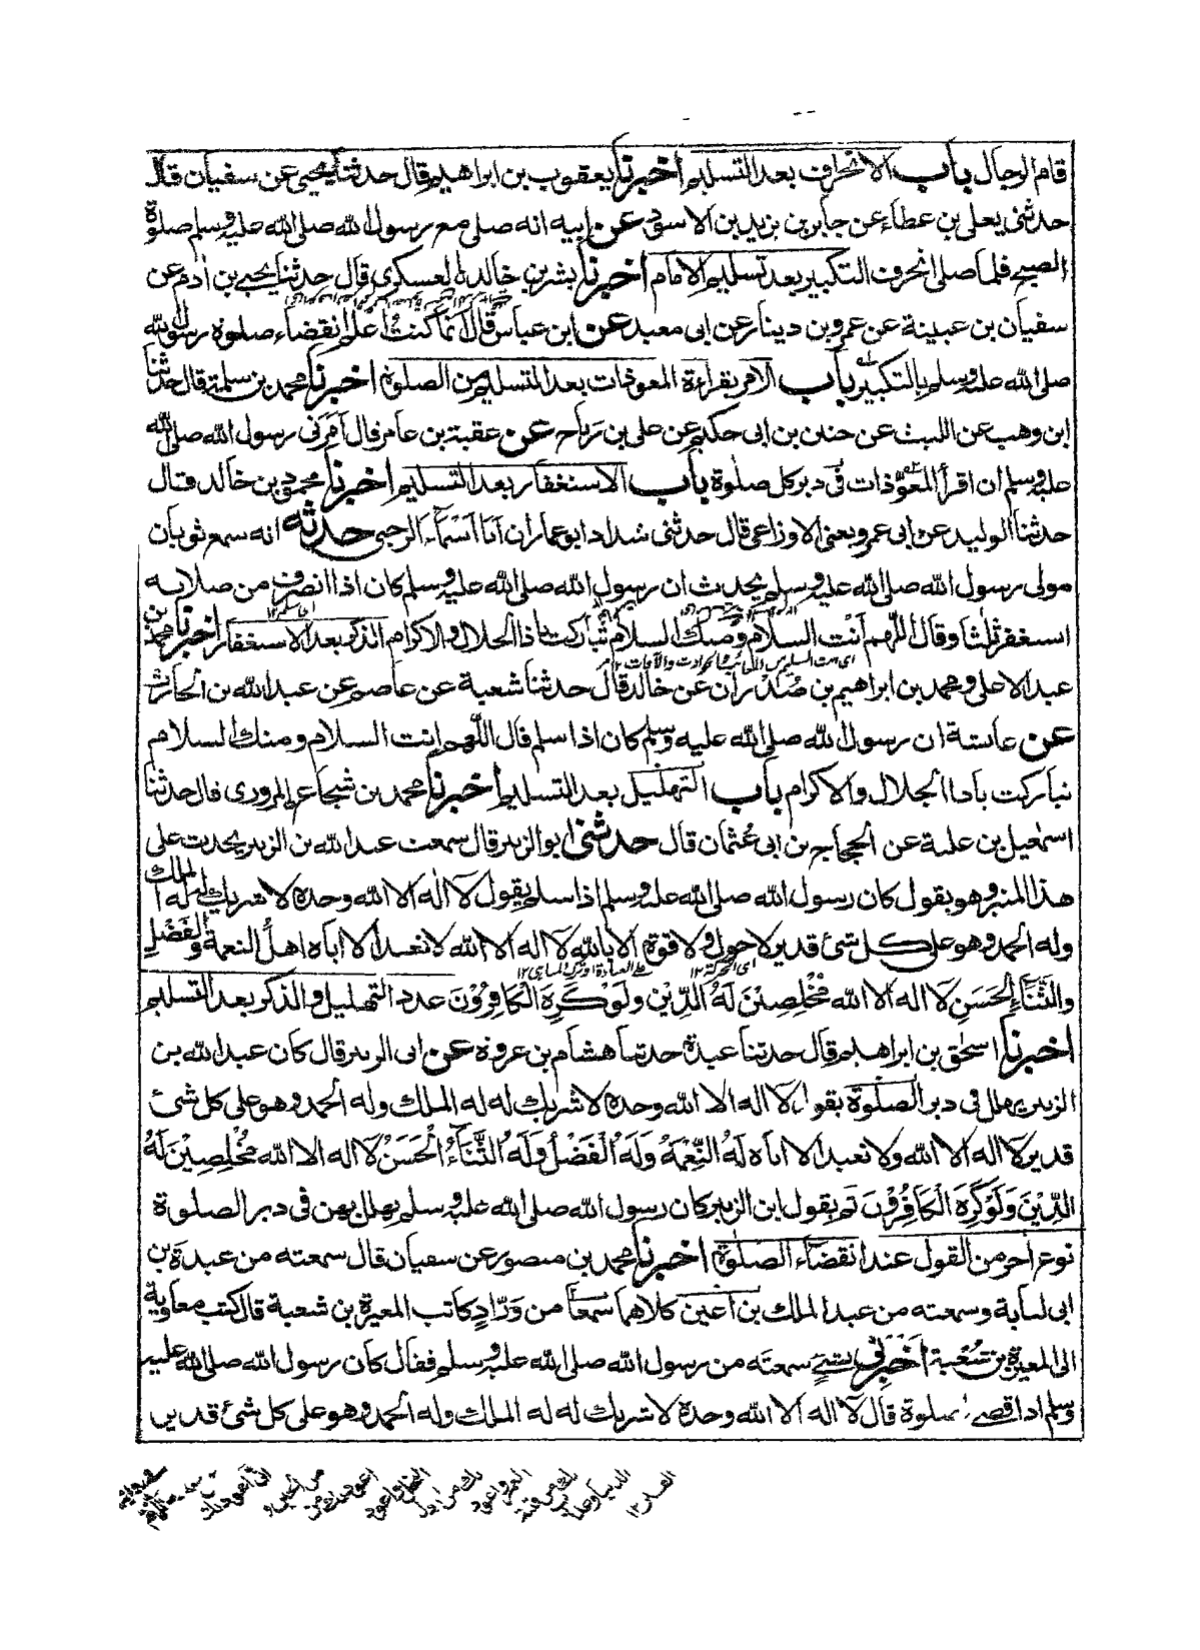 قام الرجال باب الانحراف بعد التسليم أخبرنا يعقوب بن ابراهيم قال حدثنا يحيى عن سفيان قال
حدثنى يعلى بن عطاء عن جابر بن يزيد بن الاسود عن ابيه انه صلى مع رسول الله صلى الله عليه وسلم صلوة
الصبح فلما صلى انحرف التكبير بعد تسليم الامام أخبرنا بشر بن خالد العسكرى قال حدثنا يحيى بن ادم عن
سفيان بن عيينة عن عمرو بن دينار عن ابى معبد عن ابن عباس قال انما كنت اعلم انقضاء صلوة رسول الله
صلى الله عليه وسلم بالتكبير باب الامر بقراءة المعوذات بعد التسليم من الصلوة اخبرنا محمد بن سلمة قال حدثنا
ابن وهب عن الليث عن حنين بن ابى حكيم عن على بن رباح عن عقبة بن عامر قال أمرنى رسول الله صلى الله
عليه وسلم ان اقرأ المعوذات فى دبر كل صلوة باب الاستغفار بعد التسليم اخبرنا محمود بن خالد قال
حدثنا الوليد عن ابى عمرو يعنى الاوزاعى قال حدثنى شداد ابو عمار ان أبا أسماء الرحبى حدثه انه سمع ثوبان
مولى رسول الله صلى الله عليه وسلم يحدث ان رسول الله صلى الله عليه وسلم كان اذا انصرف من صلاته
استغفر ثلثا وقال اللهم أنت السلام ومنك السلام تباركت ياذا الجلال والاكرام الذكر بعد الاستغفار اخبرنا محمد بن
اى منك السلم من المعائب والحوادث والآفات ١٢
عبد الاعلى ومحمد بن ابراهيم بن صدران عن خالد قال حدثنا شعبة عن عاصم عن عبد الله بن الحارث
عن عائشة ان رسول الله صلى الله عليه وسلم كان اذا سلم قال اللهم انت السلام ومنك السلام
تباركت ياذا الجلال والاكرام باب التهليل بعد التسليم أخبرنا محمد بن شجاع المروزى قال حدثنا
اسمعيل بن علية عن الحجاج بن ابى عثمان قال حدثنى ابو الزبير قال سمعت عبد الله بن الزبير يحدث على
هذا المنبر وهو يقول كان رسول الله صلى الله عليه وسلم اذا سلم يقول لا اله الا الله وحده لا شريك له له الملك
وله الحمد وهو على كل شئ قدير لا حول ولا قوة الا بالله لا اله الا الله لا نعبد الا اياه اهل النعمة والفضل
والثناء الحسن لا اله الا الله مخلصين له الدين ولو كره الكافرون عدد التهليل والذكر بعد التسليم
اخبرنا اسحق بن ابراهيم قال حدثنا عبدة حدثنا هشام بن عروة عن ابى الزبير قال كان عبد الله بن
الزبير يهلل فى دبر الصلوة يقول لا اله الا الله وحده لا شريك له له الملك وله الحمد وهو على كل شئ
قدير لا اله الا الله ولا نعبد الا اياه له النعمة وله الفضل وله الثناء الحسن لا اله الا الله مخلصين له
الدين ولو كره الكافرون ثم يقول ابن الزبير كان رسول الله صلى الله عليه وسلم يهلل بهن فى دبر الصلوة
نوع اخر من القول عند انقضاء الصلوة اخبرنا محمد بن منصور عن سفيان قال سمعته من عبدة بن
ابى لبابة وسمعته من عبد الملك بن أعين كلاهما سمعا من وراد كاتب المغيرة بن شعبة قال كتب معاوية
الى المغيرة بن شعبة أخبرنى بشئ سمعته من رسول الله صلى الله عليه وسلم فقال كان رسول الله صلى الله عليه
وسلم اذا قضى الصلوة قال لا اله الا الله وحده لا شريك له له الملك وله الحمد وهو على كل شئ قدير